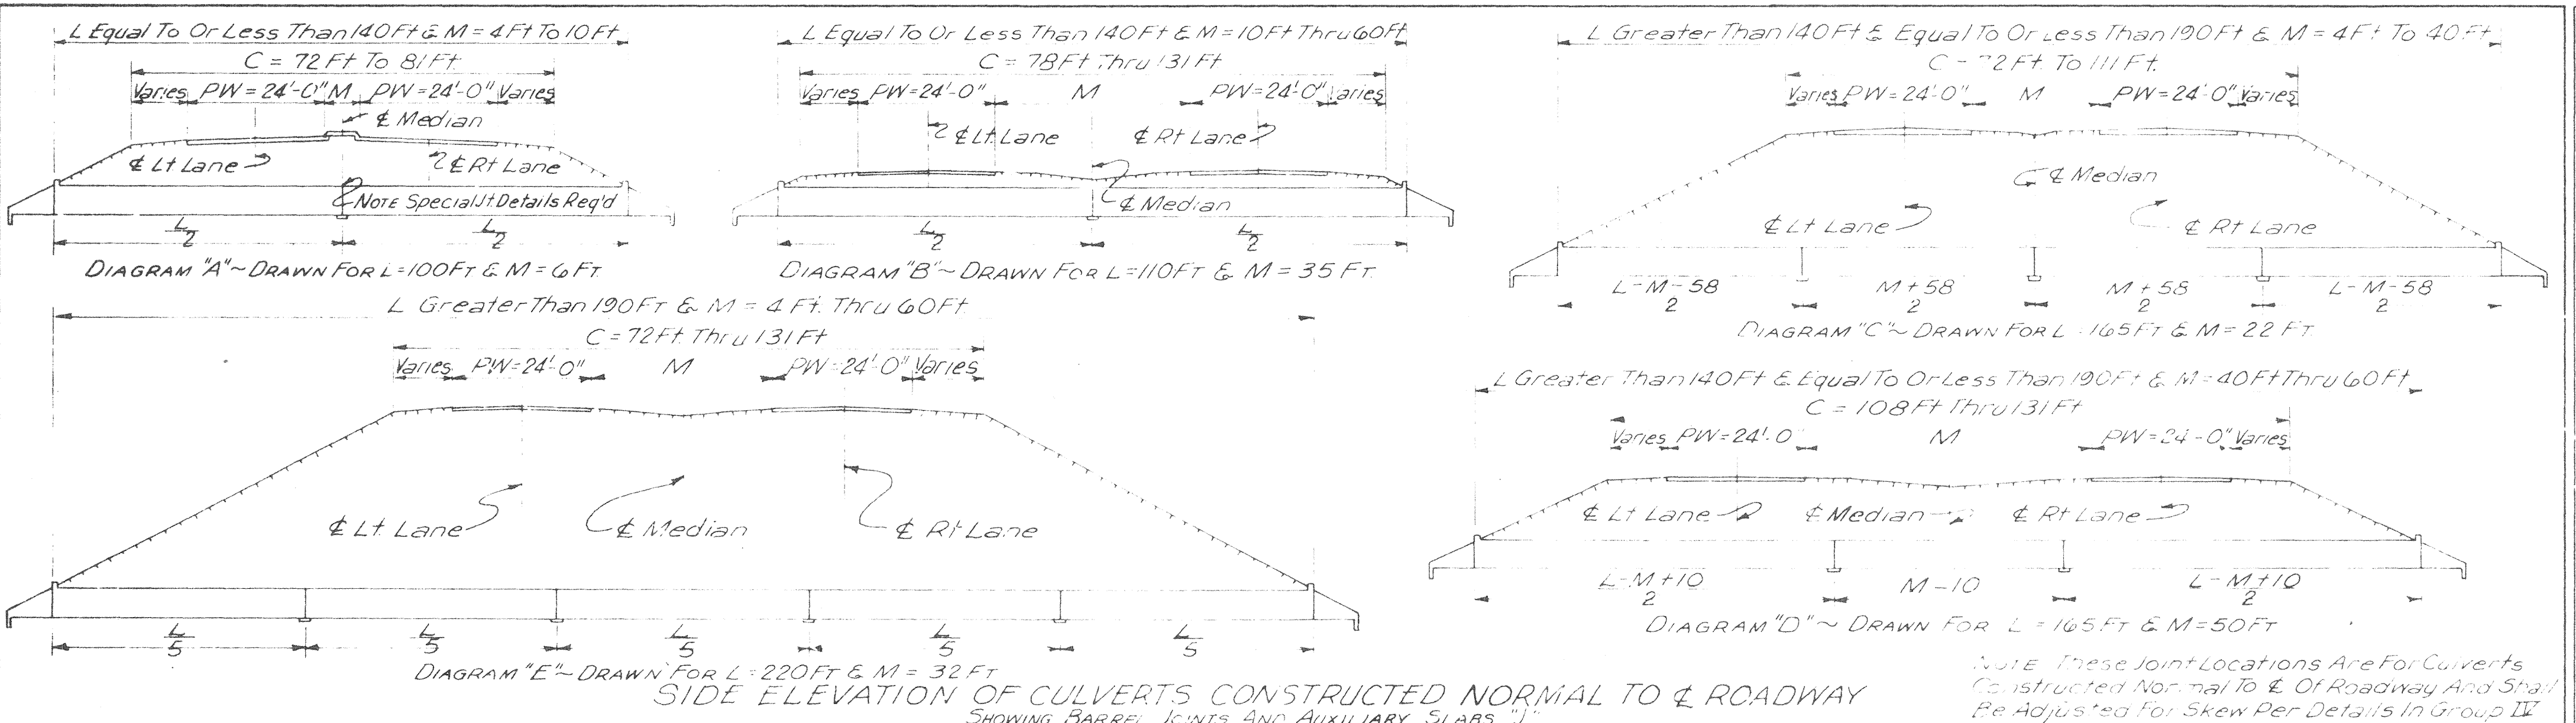 L Equal To Or Less Than 140Ft & M = 4Ft To 10Ft
C = 72Ft To 81Ft
Varies PW = 24'-0" M PW = 24'-0" Varies
℄ Median
℄ Lt Lane ℄ Rt Lane
NOTE Special Jt Details Req'd
L/2 L/2
DIAGRAM "A" ~ DRAWN FOR L=100FT & M=6FT.
L Equal To Or Less Than 140Ft & M = 10Ft Thru 60Ft
C = 78Ft Thru 131Ft
Varies PW=24'-0" M PW=24'-0" Varies
℄ Lt Lane ℄ Rt Lane
℄ Median
L/2 L/2
DIAGRAM "B" ~ DRAWN FOR L=110FT & M = 35 FT.
L Greater Than 140Ft & Equal To Or Less Than 190Ft & M = 4Ft To 40Ft
C = 72Ft. To 111Ft.
Varies PW=24'-0" M PW=24'-0" Varies
℄ Median
℄ Lt Lane ℄ Rt Lane
L-M-58/2 M+58/2 M+58/2 L-M-58/2
DIAGRAM "C" ~ DRAWN FOR L=165FT & M=22 FT.
L Greater Than 190Ft & M = 4 Ft. Thru 60Ft.
C = 72Ft. Thru 131Ft
Varies PW=24'-0" M PW=24'-0" Varies
℄ Lt Lane ℄ Median ℄ Rt Lane
L/5 L/5 L/5 L/5 L/5
DIAGRAM "E" ~ DRAWN FOR L=220FT & M = 32 FT
L Greater Than 140Ft & Equal To Or Less Than 190Ft & M=40Ft Thru 60Ft
C = 108Ft Thru 131Ft
Varies PW=24'-0" M PW=24'-0" Varies
℄ Lt Lane ℄ Median ℄ Rt Lane
L-M+10/2 M-10 L-M+10/2
DIAGRAM "D" ~ DRAWN FOR L = 165 FT & M=50FT
SIDE ELEVATION OF CULVERTS CONSTRUCTED NORMAL TO ℄ ROADWAY
SHOWING BARREL JOINTS AND AUXILIARY SLABS "J"
NOTE These Joint Locations Are For Culverts
Constructed Normal To ℄ Of Roadway And Shall
Be Adjusted For Skew Per Details In Group IV